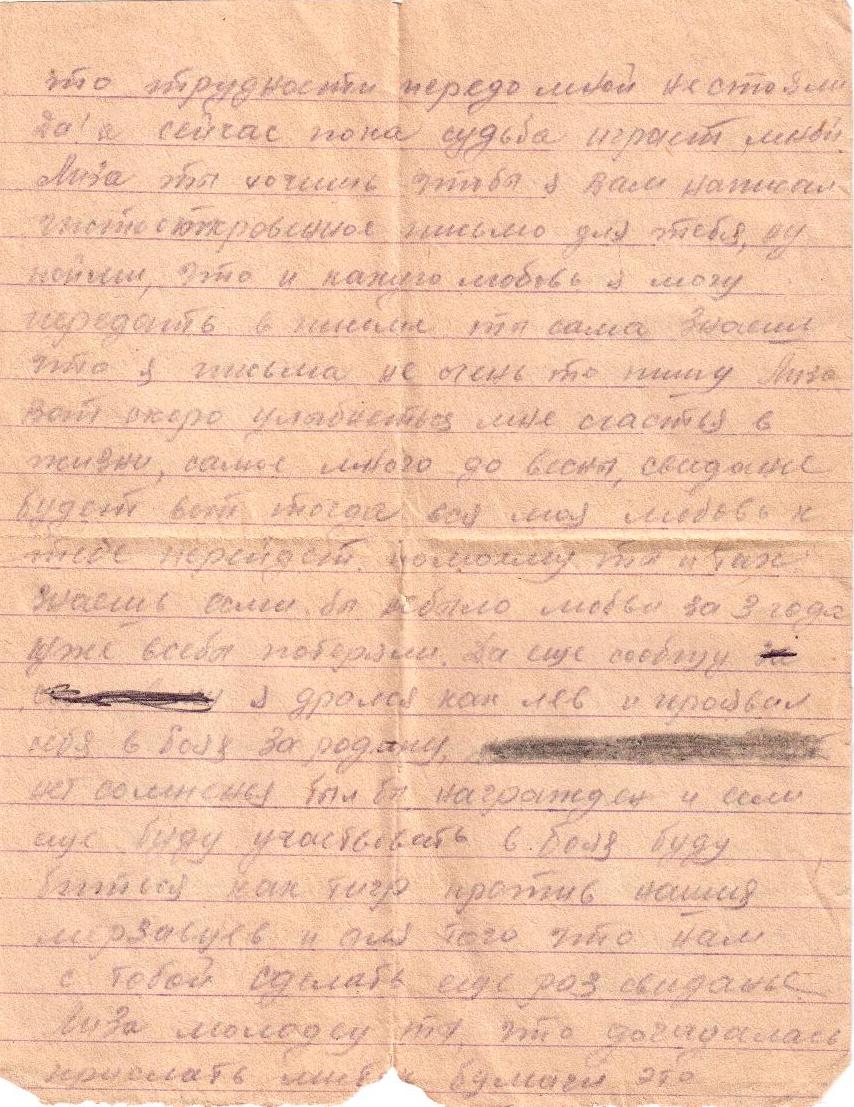 что трудности передо мной нестояли
Да! а сейчас пока судьба играет мной.
Лиза ты хочешь чтобы я вам написал
чистосткровенное письмо для тебя, ну
пойми, что и какую любовь я могу
передать в письме ты сама знаешь
что я письма не очень то пишу Лиза
вот скоро улыбнеться мне счастья в
жизни, самое много до весны, свидание
будет вот тогда вся моя любовь к
тебе перейдет. помоему ты и так
знаешь если бы небыло любви за 3 года
уже всебы потеряли. Да еще сообщу
я дрался как лев и проявил
себя в боях за родину,
нет сомненья был бы награжден и если
еще буду участвовать в боях буду
биться как тигр против наших
мерзавцев и для того что нам
с тобой сделать еще раз свиданье
Лиза молодец ты, что догадалась
прислать бумаги это